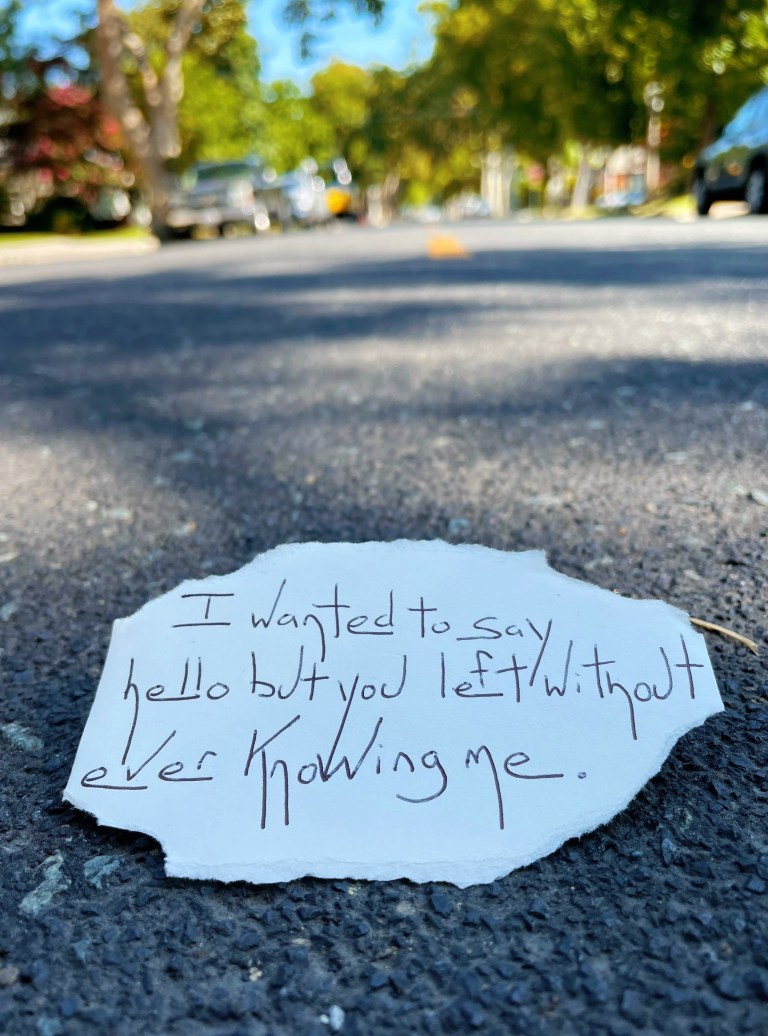 I wanted to say
hello but you left without
ever knowing me.